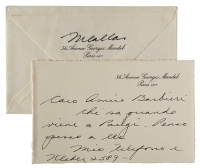 MCallas
36, Avenue Georges Mandel
Paris XVIe
36, Avenue Georges Mandel
Paris XVIe
Caro Amico Barbieri
che sa quando
viene a Parigi. Penso
spesso a lei.
Mio telefono è
Kleber 2589